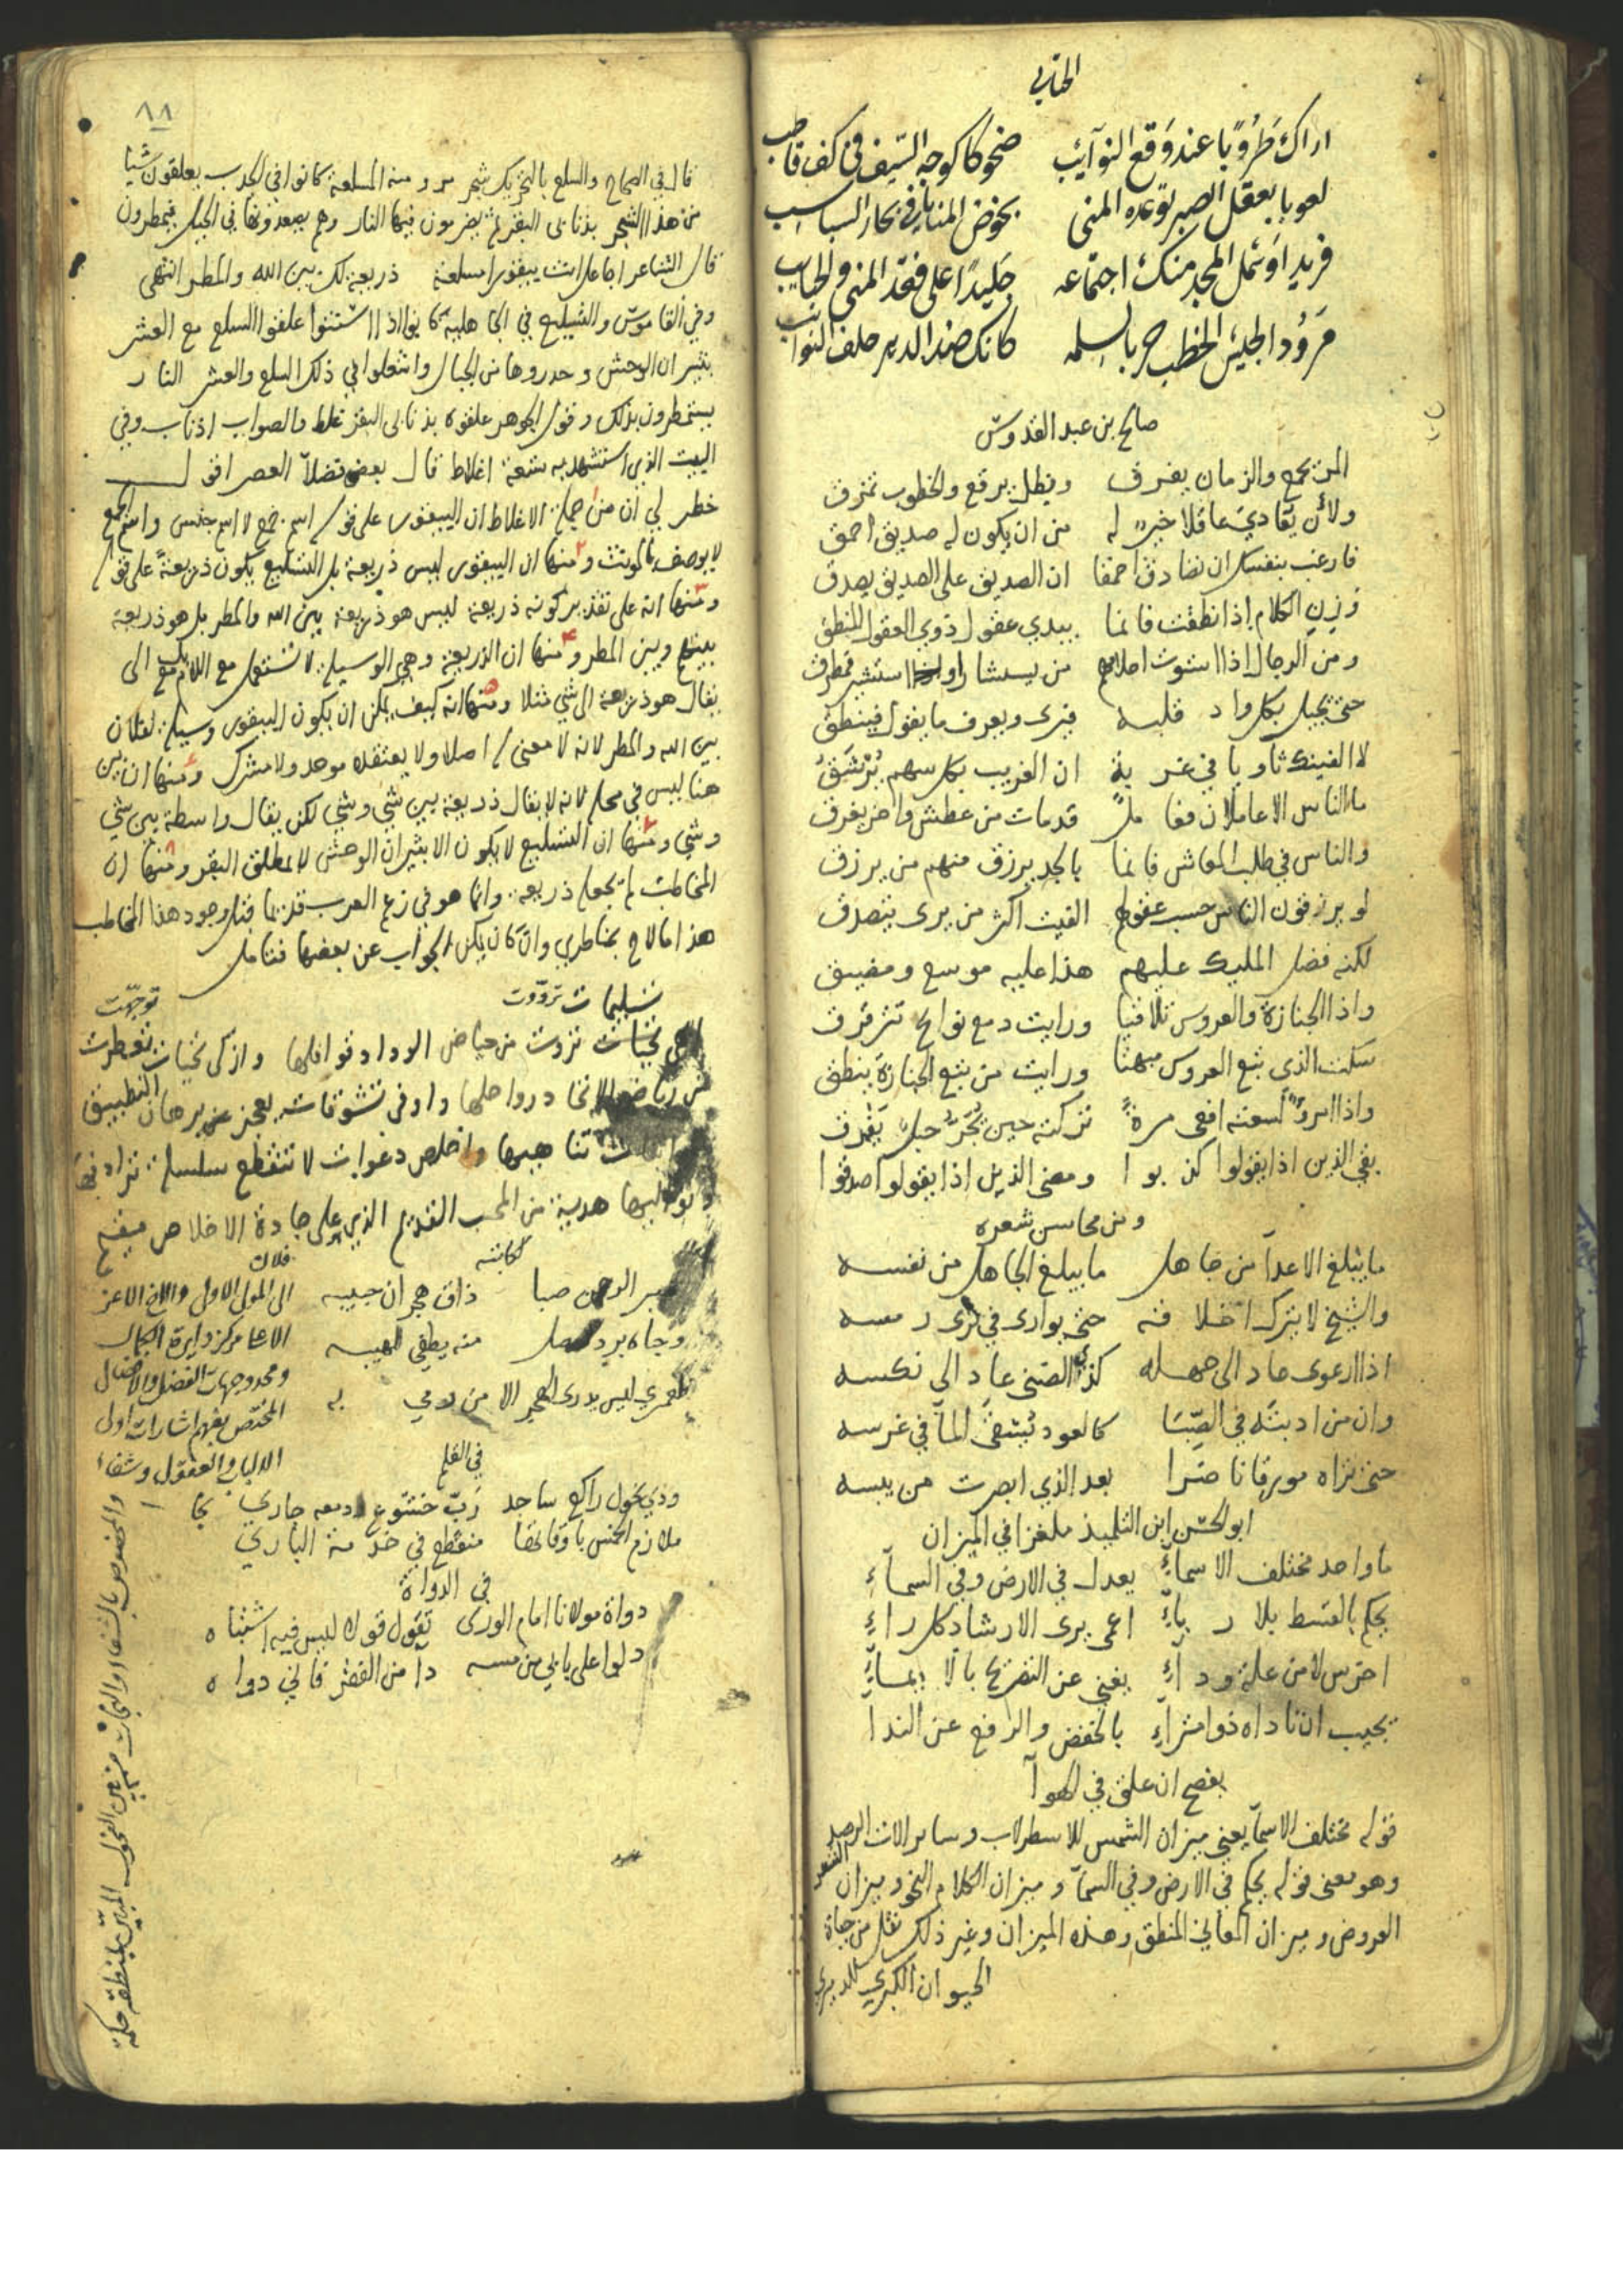 اراك طَرُوبًا عند وَقع النوآئب ضحوكا كوجه السّيف في كف قاضب
لعوبا بعقل الصبر توعده المنى بخوض المنايا في بحار السباسب
فريدا وَشمل المجد منك اجتماعه جَليدًا على فقد المنى والحبايب
صالح بن عبد القدوسّ
المرء يجمع والزمان يفرق ويظل يرقع والخطوب تمزق
ولأن يعَادي عاقلا خير له من ان يكون له صديق احمق
فارغب بنفسك ان تصادق احمقا ان الصديق على الصديق يصدق
وزن الكلام اذا نطقت فانما يبدي عقول ذوي العقول المنطق
ومن الرجال اذا استوت احلامهم من يستشار اذا استشير فيطرق
حتى يجيل بكل واد قلبه فيرى ويعرف ما يقول فينطق
لا الفينك ثاويا في غربة ان الغريب بكل سهم يُرْشَقُ
ما الناس الا عاملان فعامل قد مات من عطش واخر يغرق
والناس في طلب المعاش فانما بالجد يرزق منهم من يرزق
لو يرزقون الناس حسب عقولهم الفيت اكثر من يرى يتصدق
لكنه فضل المليك عليهم هذا عليه موسع ومضيق
واذا الجنازة والعروس تلاقيا ورايت دمع نوائح تترقرق
سكت الذي تبع العروس مبهتا ورايت من تبع الجنازة ينطق
واذا امرؤ لسعته افعى مرةً تركته حين يُجَرُّ حبل يَفْرق
بقي الذين اذا يقولوا كذبوا ومضى الذين اذا يقولوا صدقوا
ومن محاسن شعره
ما يبلغ الاعدآ من جاهل ما يبلغ الجاهل من نفسه
والشيخ لا يترك اخلاقه حتى يوارى في ثرى رمسه
اذا ارعوى عاد الى جهله كذي الضنى عاد الى نكسه
وان من ادبتَه في الصِّبَا كالعود يُسقى المآ في غرسه
حتى تراه مورقا ناضرا بعد الذي ابصرت من يبسه
ابو الحسن ابن التلميذ ملغزا في الميزان
ما واحد مختلف الاسمآءِ يعدل في الارض وفي السمآءِ
يحكم بالقسط بلا ريآءِ اعمى يرى الارشاد كل راءِ
اخرس لا من علة ودآءِ يغني عن التصريح بالايمآءِ
يجيب ان ناداه ذو امترآءِ بالخفض والرفع عن الندا
يفصح ان علق في الهوآ
قوله مختلف الاسمآ يعني ميزان الشمس للاسطرلاب وساير الات الرصد
وهو معنى قوله يحكم في الارض وفي السمآ وميزان الكلام النحو وميزان الشعر
العروض وميزان المعاني المنطق وهذه الميزان وغير ذلك نقل من حياة
الحيوان الكبرى للدميري
٨٨
قال في الصحاح والسلع بالتحريك شجر مر ومنه المسلعة كانوا في الجدب يعلقون شيا
من هذا الشجر بذنابى البقر ثم يضرمون فيها النار وهم يصعدونها في الجبل فيمطرون
قال الشاعر اجاعل انت بيقورا مسلعة ذريعة لك بين الله والمطر انتهى
وفي القاموسّ والتسليع في الجاهلية كانوا اذا استنوا علقوا السلع مع العشر
بثيران الوحش وحدروها من الجبال واشعلوا في ذلك السلع والعشر النار
يستمطرون بذلك وقول الجوهر علقوه بذنابى البقر غلط والصواب اذناب وفي
البيت الذي استشهد به تسعة اغلاط قال بعض فضلآ العصر اقول
خطر لي ان من جملة الاغلاط ان البيقور على قول اسم جمع لا اسم جنس واسم الجمع
لا يوصف بالمونث ومنها ان البيقور ليس ذريعة بل التسليع يكون ذريعة على قول
ومنها انه على تقدير كونه ذريعة ليس هو ذريعة بين الله والمطر بل هو ذريعة
بينهم وبين المطر ومنها ان الذريعة وهي الوسيلة لا تستعمل مع اللام بل مع الى
يقال هو ذريعة الى شي مثلا ومنها انه كيف يمكن ان يكون البيقور وسيلة لفلان
بين الله والمطر لانه لا معنى له اصلا ولا يعتقده موحد ولا مشرك ومنها ان بين
هنا ليس في محله لانه لا يقال ذريعة بين شي وشي لكن يقال واسطة بين شي
وشي ومنها ان التسليع لا يكون الا بثيران الوحش لا بمطلق البقر ومنها ان
المخاطب لم يجعله ذريعة وانما هو في زعم العرب قديما قبل وجود هذا المخاطب
هذا ما لاح بخاطري وان كان يمكن الجواب عن بعضها فتامل
تسليمات تروّت توجّهت
تحيات تروت من حياض الوداد قوافلها وازكى تحيات تعطرت
من رياض الاتحاد رواحلها واوفى تشوقات يعجز عن برهان التطبيق
تناهيها واخلص دعوات لا تنقطع سلسلة ترادفها
وتواليها هدية من المحب القديم الذي على جادة الاخلاص مقيم
كاتبه فلان
صبا ذاق هجران حبيبه الى المولى الاول والاخ الاعز
وجاه برد منه يطفي لهيبه الاعا مركز دايرة الكمال
ومحدد جهات الفضل والافضال
لعمري ليس يدري الهجر الا من رمي به المختص بفهم اشارات اولى
الالباب والعقول وشفاء
في القلم
وذي نحول راكع ساجد رَبّ خشوع دمعه جاري
ملازم الخمس باوقاتها منقطع في خدمة الباري
في الدواة
دواة مولانا امام الورى تقول قولا ليس فيه اشتباه
دلوا على بابي من مسه دا من الفقر فاني دواه